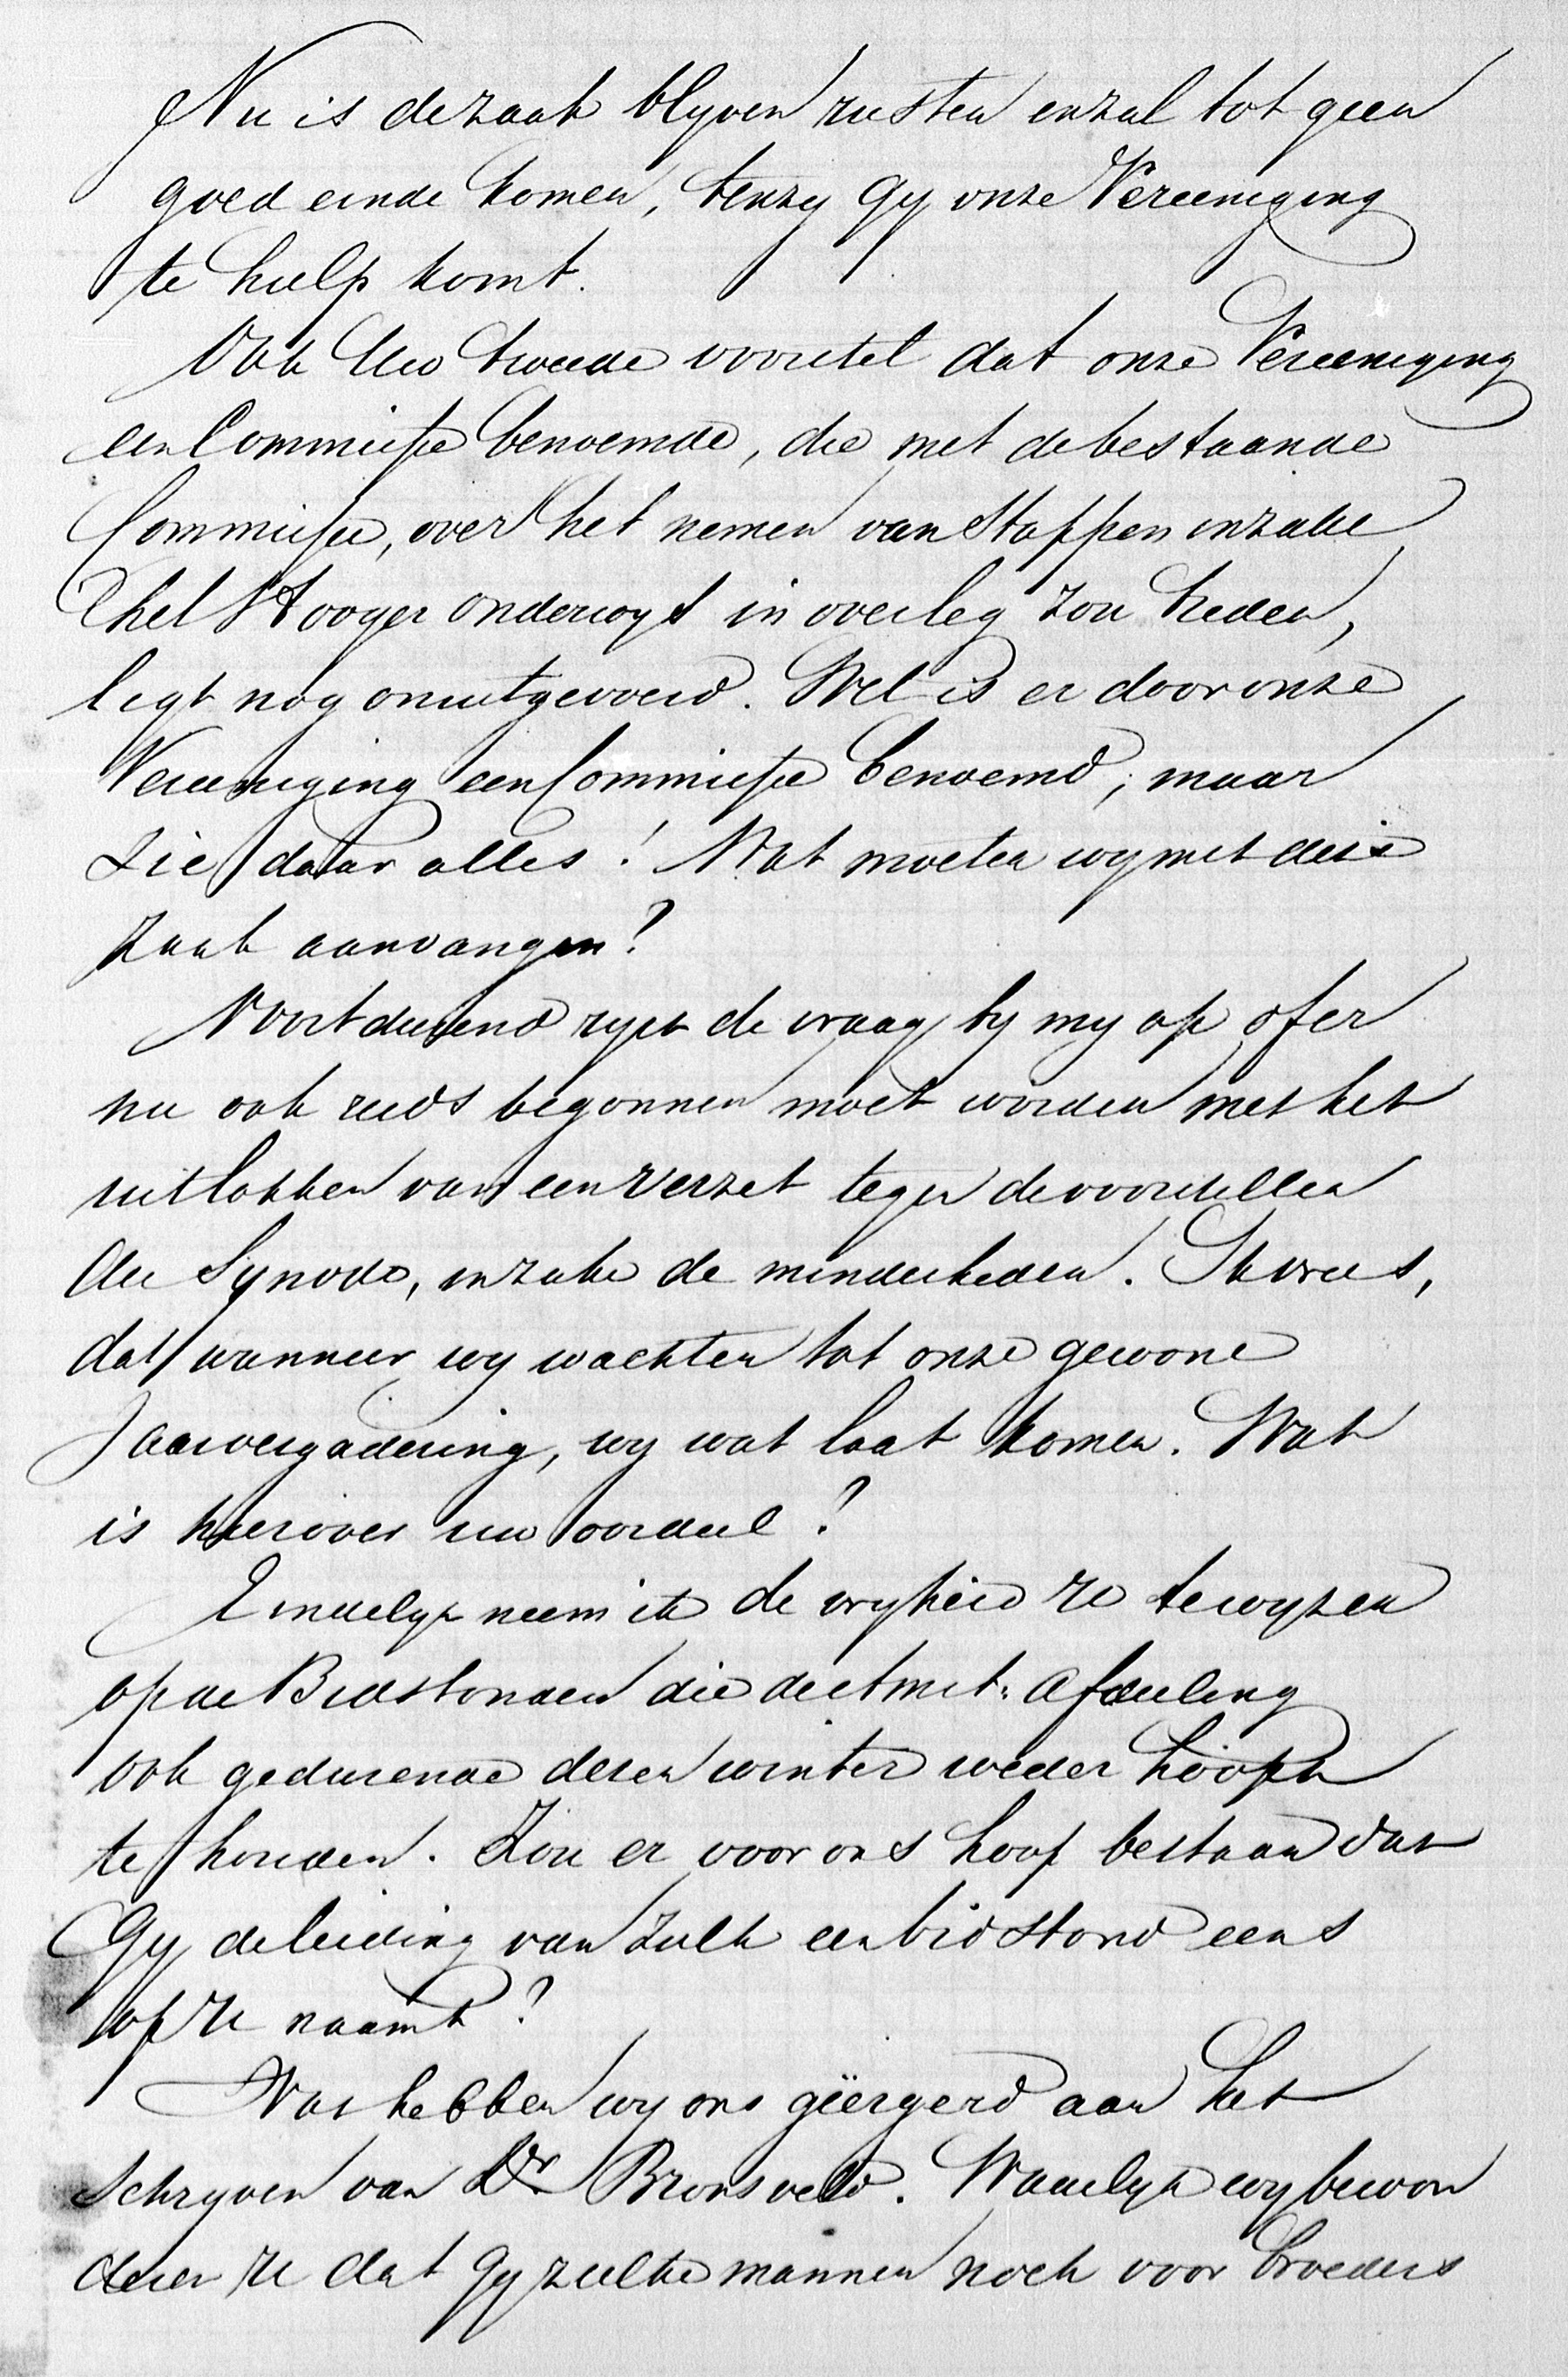 Nu is de zaak blyven rusten en zal tot geen
goed einde komen, tenzy Gy onze Vereeniging
te hulp komt.
Ook Uw tweede voorstel dat onze Vereeniging
een Commissie benoemde, die met de bestaande
Commissie, over het nemen van stappen inzake
het Hooger onderwys in overleg zou treden,
ligt nog onuitgevoerd. Wel is er door onze
Vereeniging een Commissie benoemd, maar
zie daar alles! Wat moeten wy met deze
zaak aanvangen?
Voortdurend ryst de vraag by my op of er
nu ook reeds begonnen moet worden met het
uitlokken van een verzet tegen de voorstellen
der Synode, inzake de minderheden. Ik vrees,
dat wanneer wy wachten tot onze gewone
Jaarvergadering, wy wat laat komen. Wat
is hierover uw oordeel?
Eindelyk neem ik de vryheid U te wyzen
op de Bidstonden die de Utrecht: afdeeling
ook gedurende dezen winter weder hoopt
te houden. Zou er voor ons hoop bestaan dat
Gy de leiding van zulk een bidstond eens
op U naamt?
Wat hebben wy ons geërgerd aan het
schryven van Dr Bronsveld. Waarlyk wy bewon
deren U dat Gy zulke mannen noch voor broeders